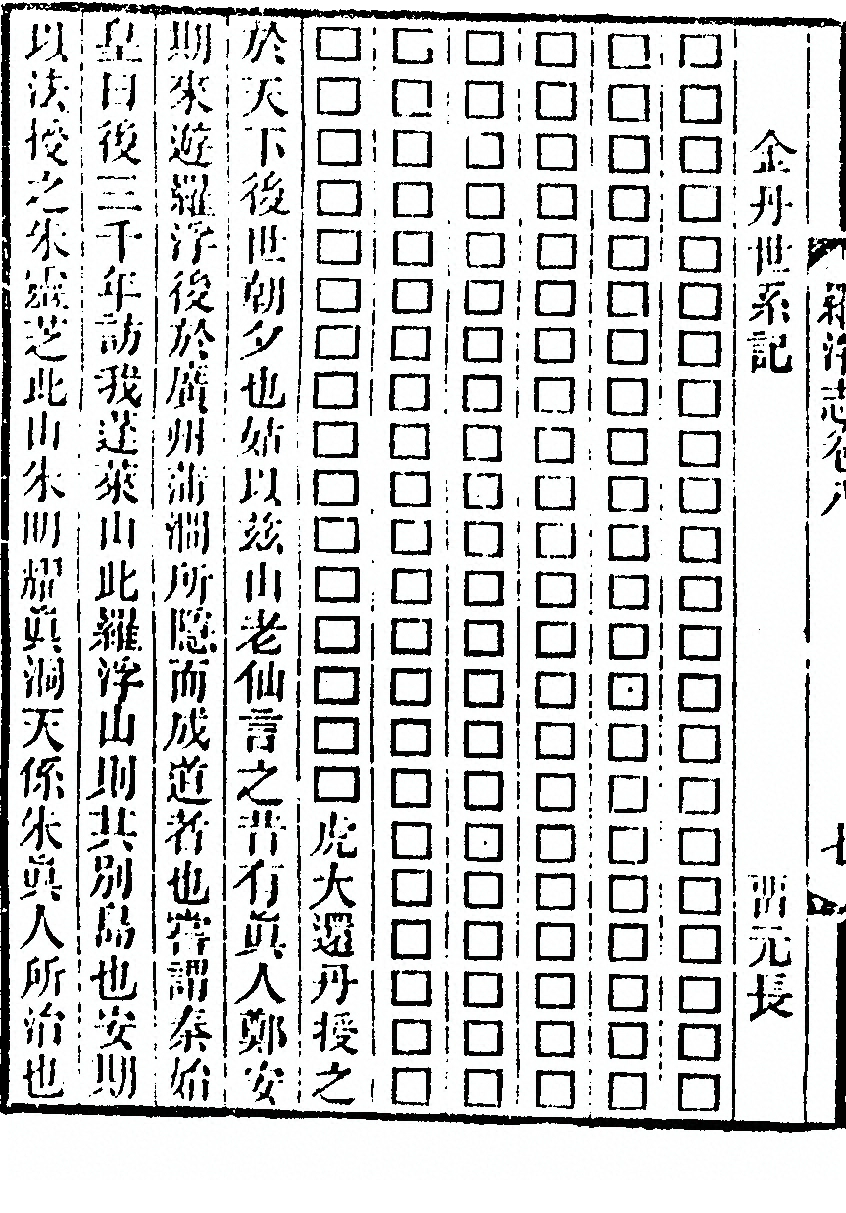 羅浮志卷八 七
金丹世系記 賈元長
□□□□□□□□□□□□□□□□□□□□□□
□□□□□□□□□□□□□□□□□□□□□□
□□□□□□□□□□□□□□□□□□□□□□
□□□□□□□□□□□□□□□□□□□□□□
□□□□□□□□□□□□□□□□□□□□□□
□□□□□□□□□□□□□□□□虎大還丹授之
於天下後世朝夕也姑以茲山老仙言之昔有眞人鄭安
期來遊羅浮後於廣州蒲澗所隱而成道者也嘗謂秦始
皇曰後三千年訪我蓬萊山此羅浮山則其別島也安期
以法授之朱靈芝此山朱明耀眞洞天係朱眞人所治也